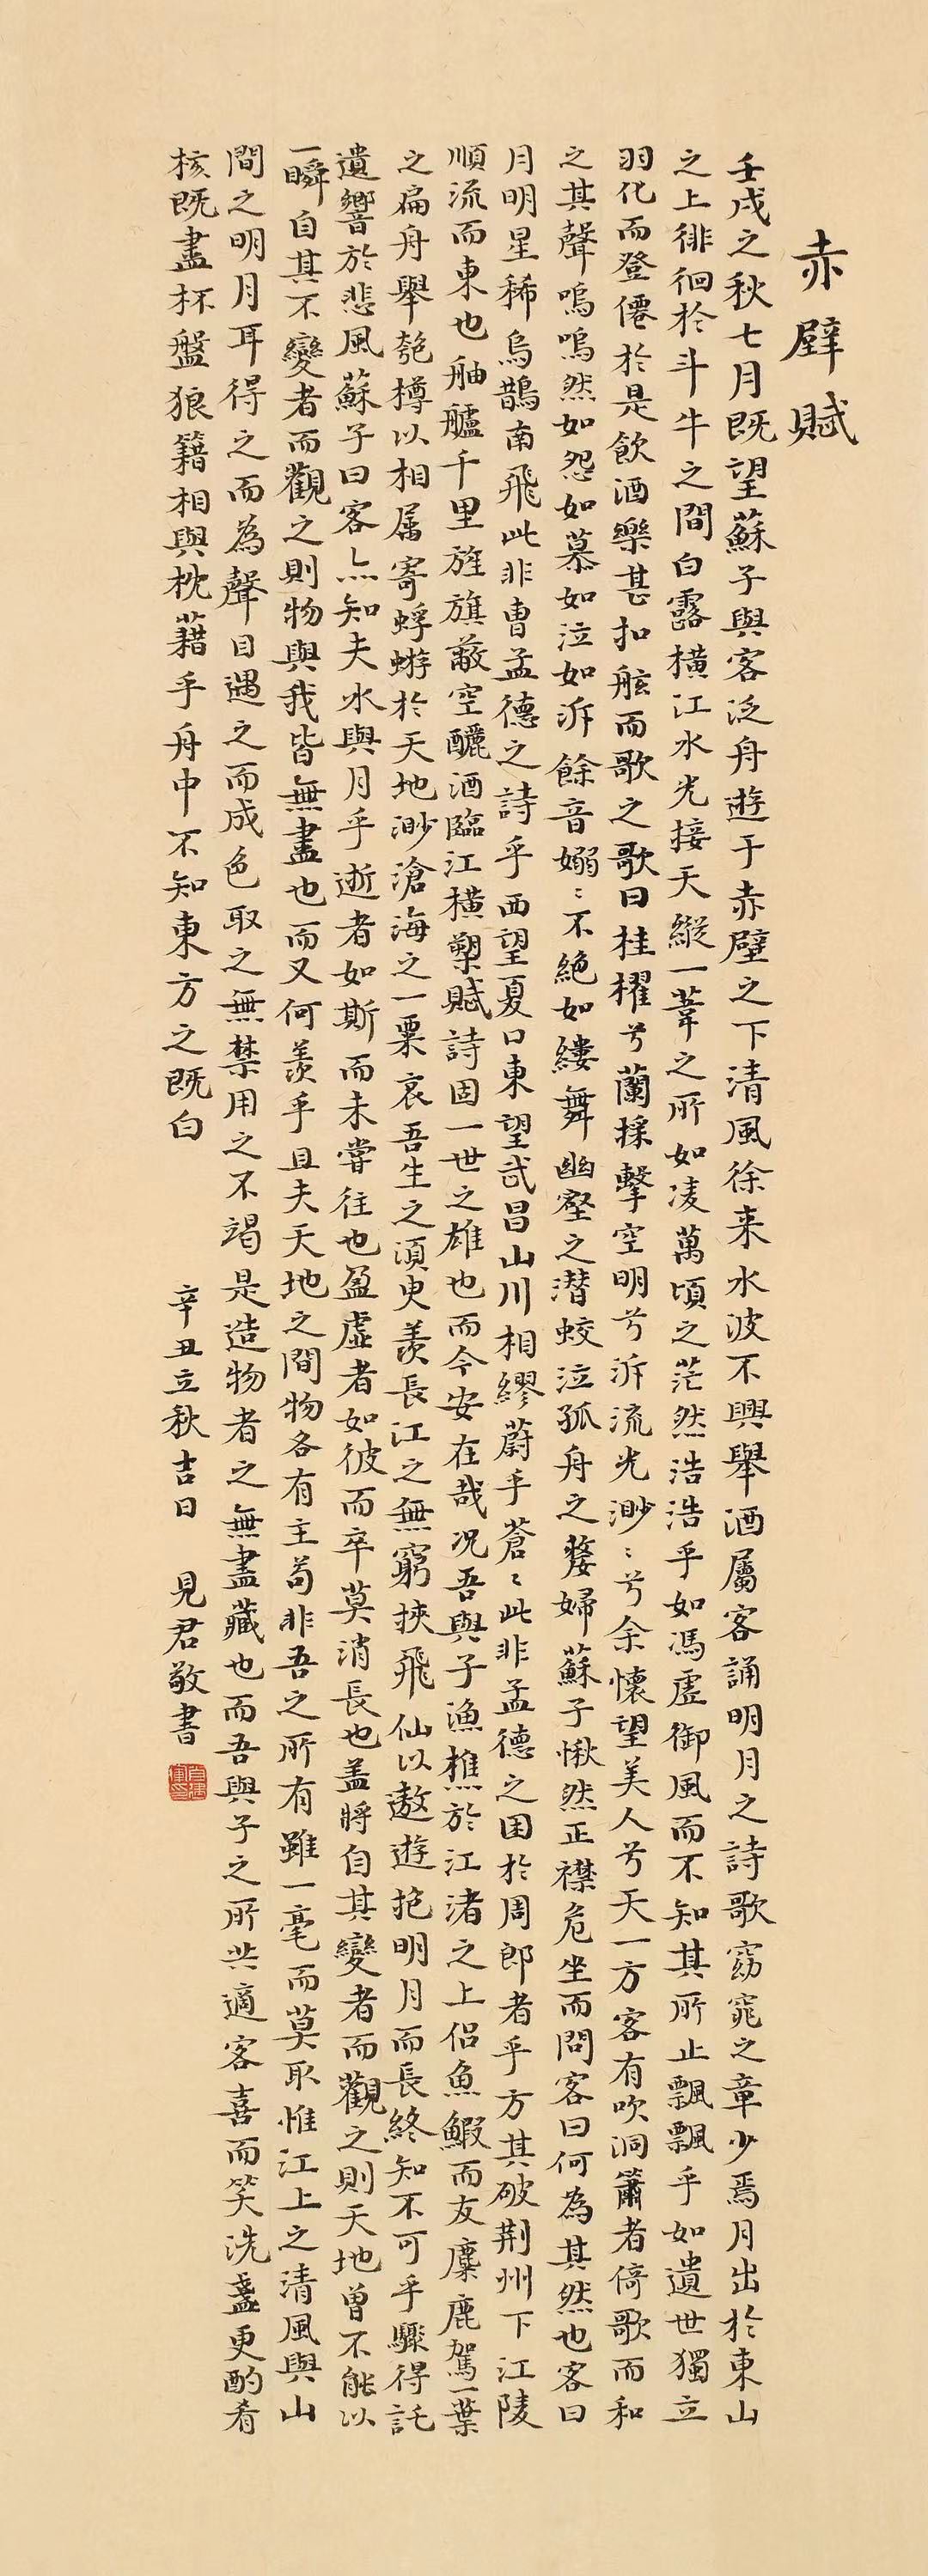 赤壁賦
壬戌之秋七月既望蘇子與客泛舟遊于赤壁之下清風徐来水波不興舉酒屬客誦明月之詩歌窈窕之章少焉月出於東山
之上徘徊於斗牛之間白露橫江水光接天縱一葦之所如凌萬頃之茫然浩浩乎如馮虛御風而不知其所止飄飄乎如遺世獨立
羽化而登僊於是飲酒樂甚扣舷而歌之歌曰桂櫂兮蘭槳擊空明兮泝流光渺〻兮余懷望美人兮天一方客有吹洞簫者倚歌而和
之其聲嗚嗚然如怨如慕如泣如泝餘音嫋〻不絕如縷舞幽壑之潛蛟泣孤舟之嫠婦蘇子愀然正襟危坐而問客曰何為其然也客曰
月明星稀烏鵲南飛此非曹孟德之詩乎西望夏口東望武昌山川相繆蔚乎蒼〻此非孟德之困於周郎者乎方其破荆州下江陵
順流而東也舳艫千里旌旗蔽空釃酒臨江橫槊賦詩固一世之雄也而今安在哉况吾與子漁樵於江渚之上侣魚鰕而友麋鹿駕一葉
之扁舟舉匏樽以相属寄蜉蝣於天地渺滄海之一粟哀吾生之須臾羨長江之無窮挾飛仙以遨遊抱明月而長終知不可乎驟得託
遺響於悲風蘇子曰客亦知夫水與月乎逝者如斯而未嘗往也盈虛者如彼而卒莫消長也盖將自其變者而觀之則天地曾不能以
一瞬自其不變者而觀之則物與我皆無盡也而又何羨乎且夫天地之間物各有主苟非吾之所有雖一毫而莫取惟江上之清風與山
間之明月耳得之而為聲目遇之而成色取之無禁用之不竭是造物者之無盡藏也而吾與子之所共適客喜而笑洗盞更酌肴
核既盡杯盤狼籍相與枕藉乎舟中不知東方之既白
辛丑立秋吉日
見君敬書